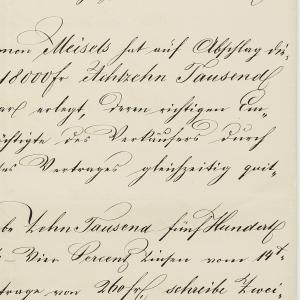 mon Meisels hat auf Abschlag die-
18000 fr Achtzehn Tausend
ar erlegt, deren richtigen Em-
ächtigte des Verkäufers durch
es Vertrages gleichzeitig quit-
be Zehn Tausend fünf Hundert
- Vier Percent Zinsen vom 14t-
trage von 260 fr, schreibe Zwei-